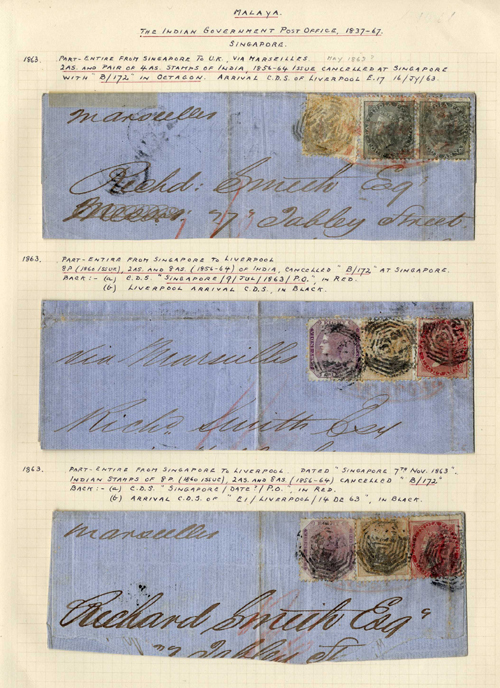 MALAYA.
THE INDIAN GOVERNMENT POST OFFICE, 1837-67.
SINGAPORE.
1863. PART-ENTIRE FROM SINGAPORE TO U.K., VIA MARSEILLES MAY 1863?
2AS. AND PAIR OF 4AS. STAMPS OF INDIA, 1856-64 ISSUE CANCELLED AT SINGAPORE
WITH "B/172" IN OCTAGON. ARRIVAL C.D.S. OF LIVERPOOL E.17 16/JY/63.
Marseilles
Richd: Smith Esqr
77 Tabley Street
1863. PART-ENTIRE FROM SINGAPORE TO LIVERPOOL
8P (1860 ISSUE), 2AS. AND 8AS. (1856-64) OF INDIA, CANCELLED "B/172" AT SINGAPORE.
BACK:- (a) C.D.S "SINGAPORE/9/JUL/1863/P.O." IN RED.
(b) LIVERPOOL ARRIVAL C.D.S. IN BLACK.
via Marseilles
Richd Smith Esq
1863. PART-ENTIRE FROM SINGAPORE TO LIVERPOOL. DATED "SINGAPORE 7TH NOV. 1863".
INDIAN STAMPS OF 8P (1860 ISSUE), 2AS. AND 8AS. (1856-64) CANCELLED "B/172"
BACK:- (a) C.D.S "SINGAPORE/DATE?/P.O., IN RED.
(b) ARRIVAL C.D.S. OF "E1/LIVERPOOL/14 DE 63", IN BLACK.
Marseilles
Richard Smith Esqr
77 Tabley St